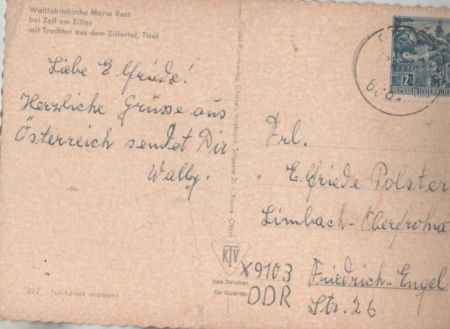 Wallfahrtskirche Maria Rast
bei Zell am Ziller
mit Trachten aus dem Zillertal, Tirol
Liebe Elfriede!
Herzliche Grüsse aus
Österreich sendet Dir
Wally.
Frl.
Elfriede Polster
Limbach-Oberfrohna
X9103
Friedrich-Engel
DDR
Str. 26
KTV
Das Zeichen
für Qualität
292
Nachdruck verboten!
REPUBLIK ÖSTERREICH